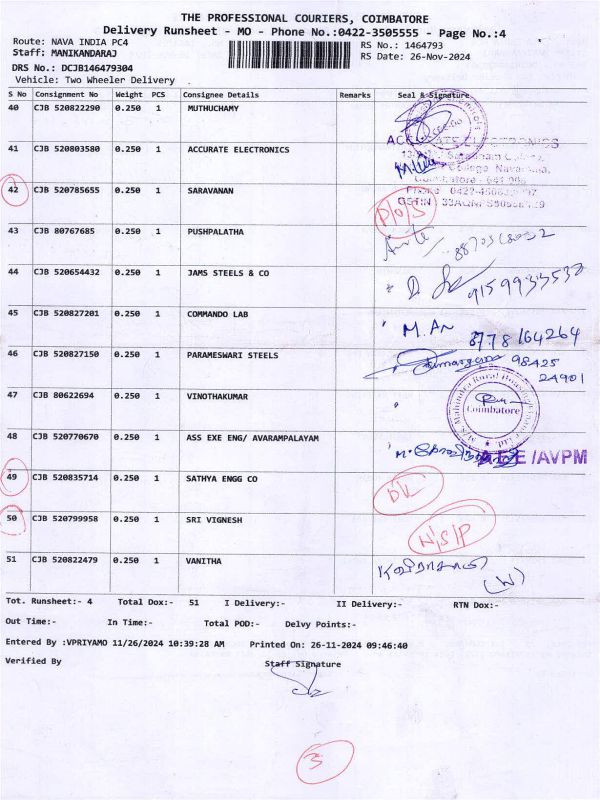 THE PROFESSIONAL COURIERS, COIMBATORE
Delivery Runsheet - MO - Phone No.:0422-3505555 - Page No.:4
Route: NAVA INDIA PC4 RS No.: 1464793
Staff: MANIKANDARAJ RS Date: 26-Nov-2024
DRS No.: DCJB146479304
Vehicle: Two Wheeler Delivery
S No Consignment No Weight PCS Consignee Details Remarks Seal & Signature
40 CJB 520822290 0.250 1 MUTHUCHAMY
41 CJB 520803580 0.250 1 ACCURATE ELECTRONICS
42 CJB 520785655 0.250 1 SARAVANAN D/O/S
43 CJB 80767685 0.250 1 PUSHPALATHA
44 CJB 520654432 0.250 1 JAMS STEELS & CO 9159933532
45 CJB 520827201 0.250 1 COMMANDO LAB M. An 8778164264
46 CJB 520827150 0.250 1 PARAMESWARI STEELS 98425
24901
47 CJB 80622694 1 0.250 VINOTHAKUMAR Coimbatore
48 CJB 520770670 0.250 1 ASS EXE ENG/ AVARAMPALAYAM A.E.E/AVPM
49 CJB 520835714 0.250 1 SATHYA ENGG CO DL
50 CJB 520799958 0.250 1 SRI VIGNESH N/S/P
51 CJB 520822479 0.250 1 VANITHA
(W)
Tot. Runsheet:- 4 Total Dox:- 51 I Delivery:- II Delivery:- RTN Dox:-
Out Time:- In Time:- Total POD:- Delvy Points:-
Entered By :VPRIYAMO 11/26/2024 10:39:28 AM Printed On: 26-11-2024 09:46:40
Verified By Staff Signature
3